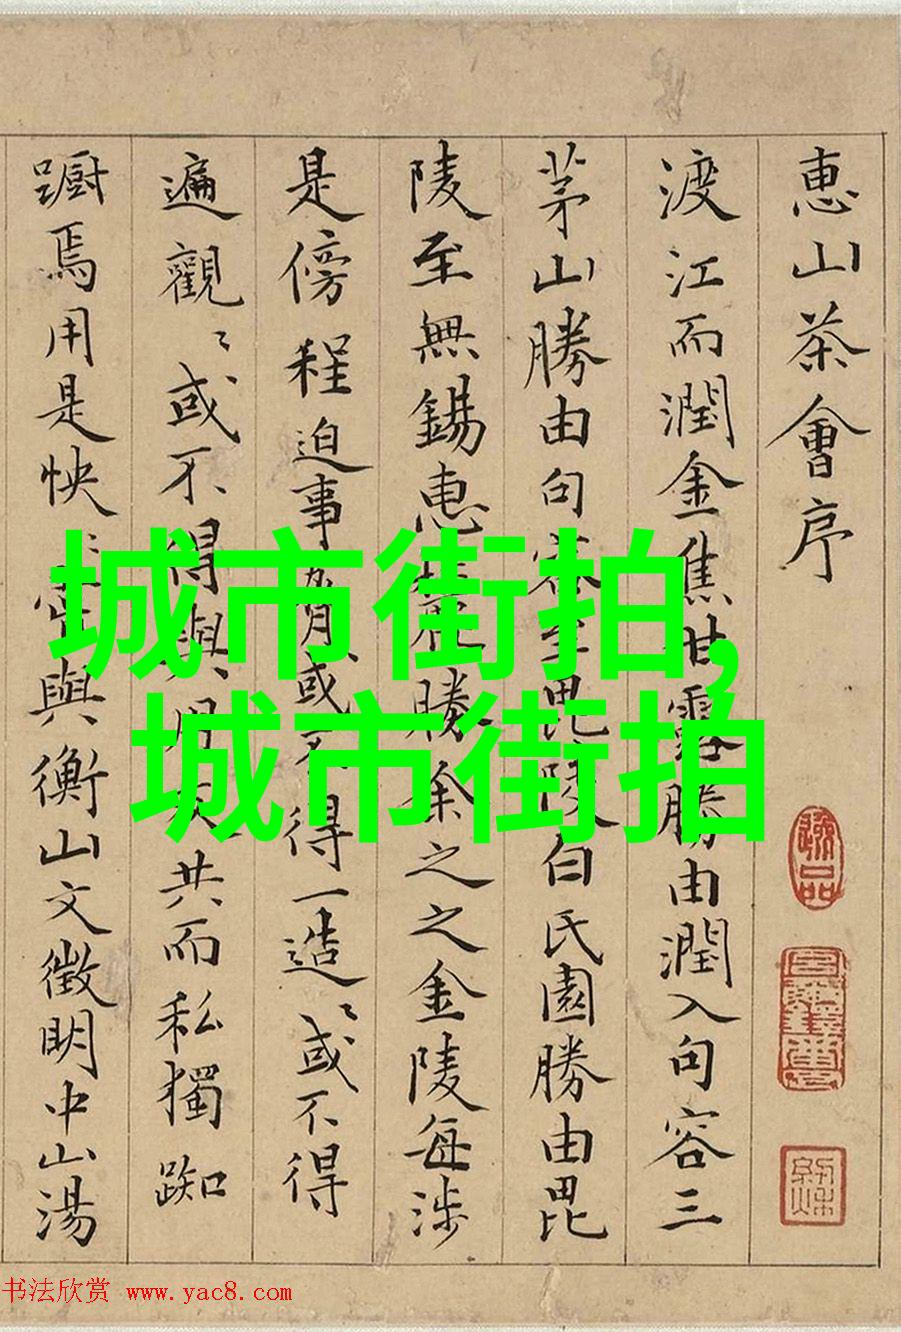 惠山茶會序
渡江而潤金焦甘露勝由潤入句容三
茅山勝由句容至毘陵白氏園勝由毘
陵至無錫惠麓勝余之之金陵每涉
是傍程迫事膂或不得一造〻或不得
遍觀〻或不得與朋友共而私獨踟
蹰焉用是怏〻嘗與衡山文徵明中山湯
城市街拍,
城市街拍
書法欣赏 www.yac8.com